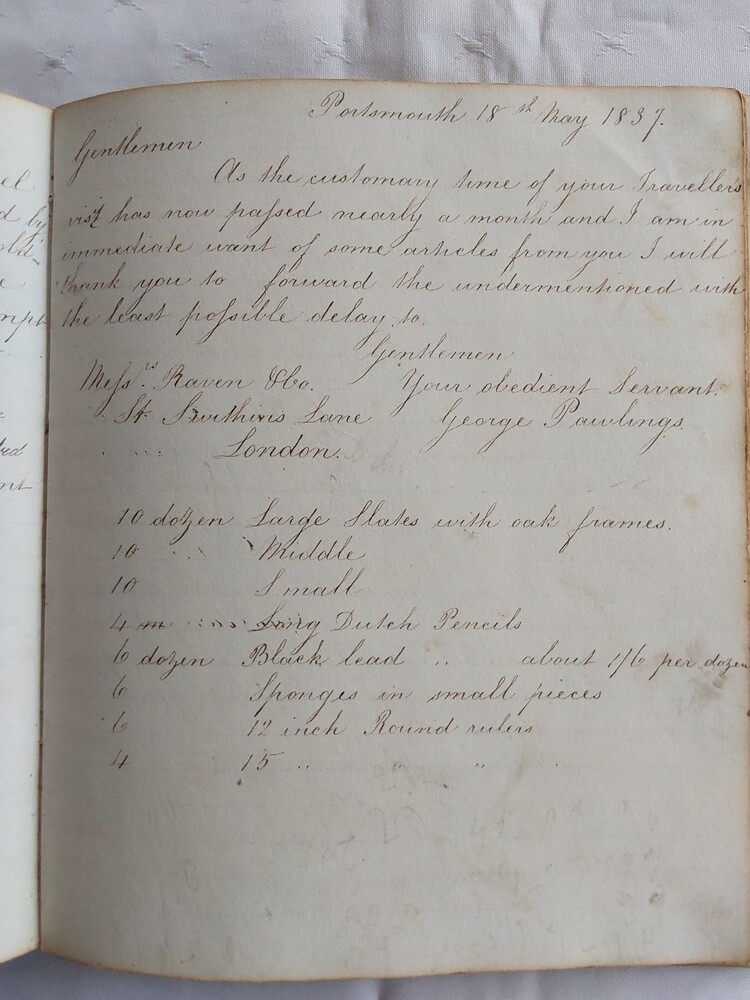 Portsmouth 18th May 1837.
Gentlemen
As the customary time of your Traveller's
visit has now passed nearly a month and I am in
immediate want of some articles from you I will
thank you to forward the undermentioned with
the least possible delay to.
Gentlemen
Messrs. Raven & Co. Your obedient Servant.
St. Swithin's Lane George Pawlings.
London.
10 dozen Large Slates with oak frames.
10 .. Middle
10 Small
4 m .. Long Dutch Pencils
6 dozen Black lead .. about 1/6 per dozen
6 Sponges in small pieces
6 12 inch Round rulers
4 15 .. " "
el
d by
e
mpt
nt